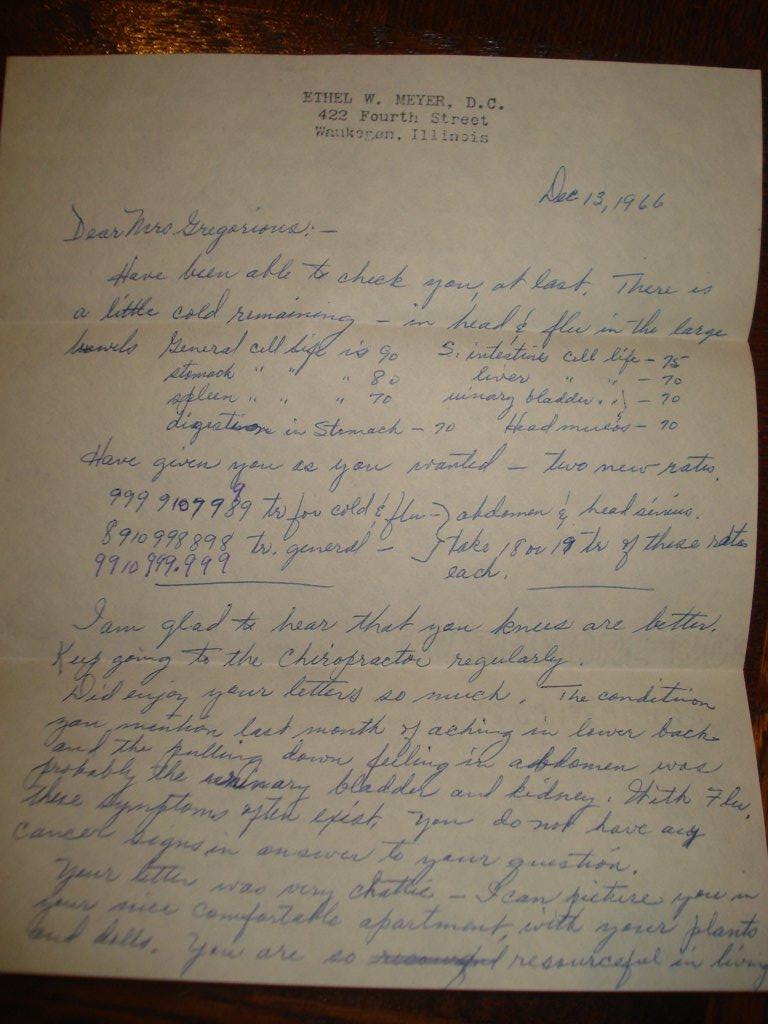 ETHEL W. MEYER, D.C.
422 Fourth Street
Waukegan, Illinois
Dec 13, 1966
Dear Mrs. Gregorious:—
Have been able to check you, at last. There is
a little cold remaining — in head & flu in the large
bowels General cell life is 90 S. intestine cell life — 75
stomach " " " 80 liver " " — 70
spleen " " " 70 urinary bladder " " — 70
digestion in Stomach — 70 Head mucos — 70
Have given you as you wanted — two new rates.
999 9109 9 89 tr for cold & flu — } abdomen & head sinus.
8910998898 tr. general — } take 18 or 19 tr of these rates
9910999.999 each.
I am glad to hear that you knees are better.
Keep going to the Chiropractor regularly.
Did enjoy your letters so much. The condition
you mention last month of aching in lower back
and the pulling down feeling in abdomen was
probably the urinary bladder and kidney. With Flu,
these symptoms often exist. You do not have any
cancer signs in answer to your question.
Your letter was very chattie — I can picture you in
your nice comfortable apartment, with your plants
and dolls. You are so resourceful in living